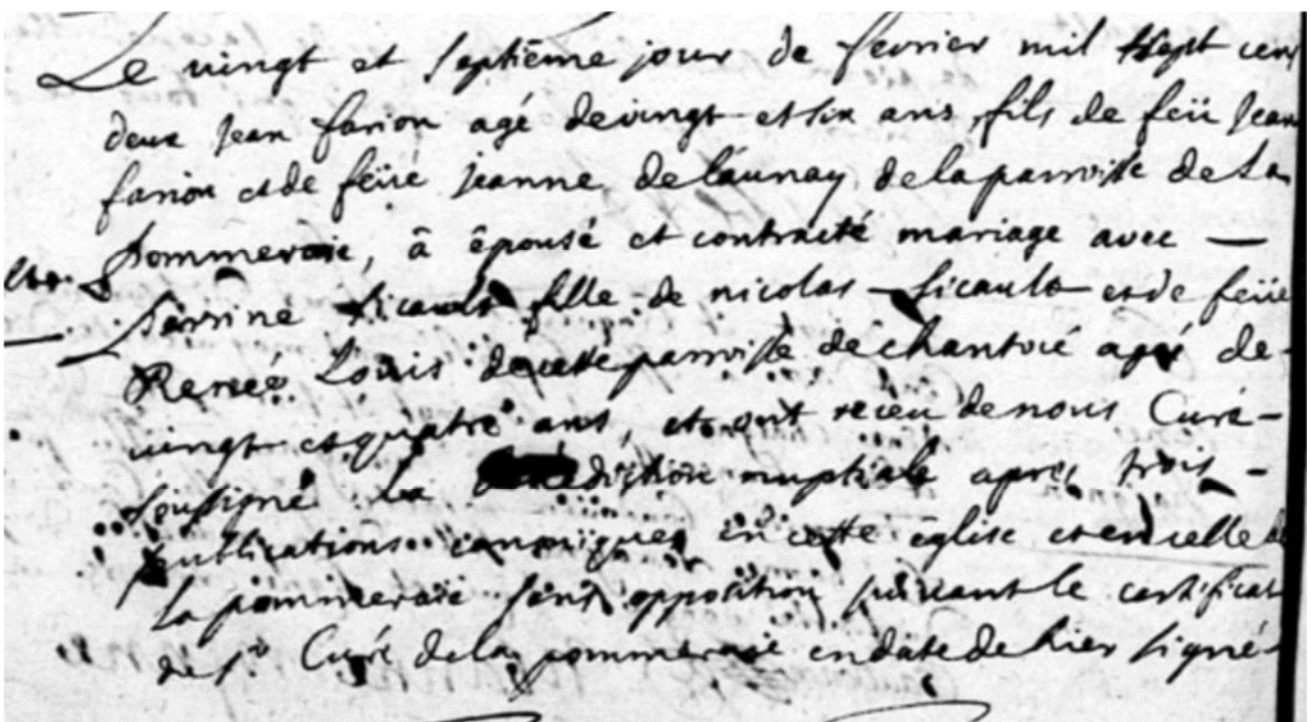 Le vingt et septiême jour de fevrier mil sept cent
deux Jean farion agé de vingt et six ans, fils de feü Jean
farion et de feüe Jeanne delaunay de la parroisse de La
pommeraie, â êpousé et contracté mariage avec —
perrine Sicault fille de nicolas Sicault et de feüe
Reneé Louis de cette parroisse de chantocé ageé de
vingt et quatre ans, et ont receu de nous Curé
soussigné La benediction nuptiale apres trois
publications canoniques en cette êglise et en celle de
la pommeraie sans opposition suivant le certificat
de Sr Curé de la pommeraie en date de hier signé